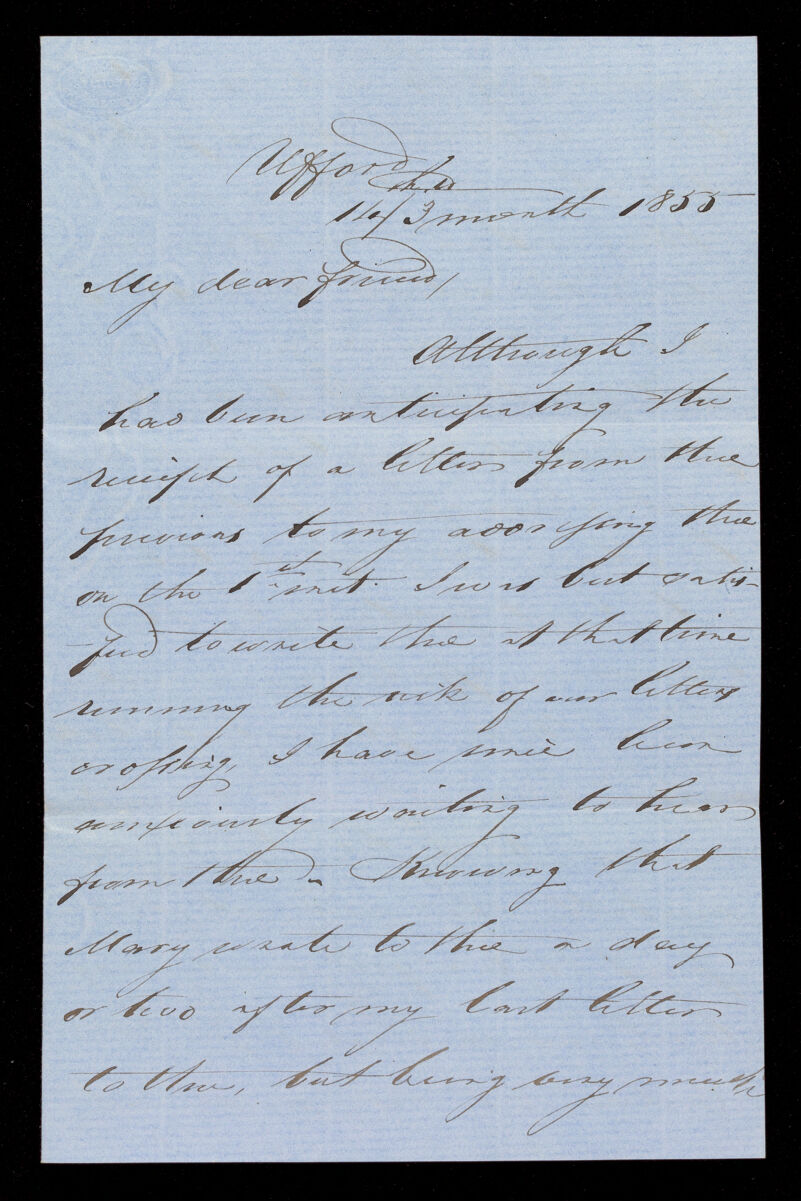 Ufford
14/3 month 1855
My dear friend,
Although I
had been anticipating the
receipt of a letter from thee
previous to my addressing thee
on the 1st inst. I was but satis-
fied to write thee at that time
running the risk of our letters
crossing, I have since been
anxiously waiting to hear
from thee. Knowing that
Mary wrote to thee a day
or two after my last letter
to thee, but being very much